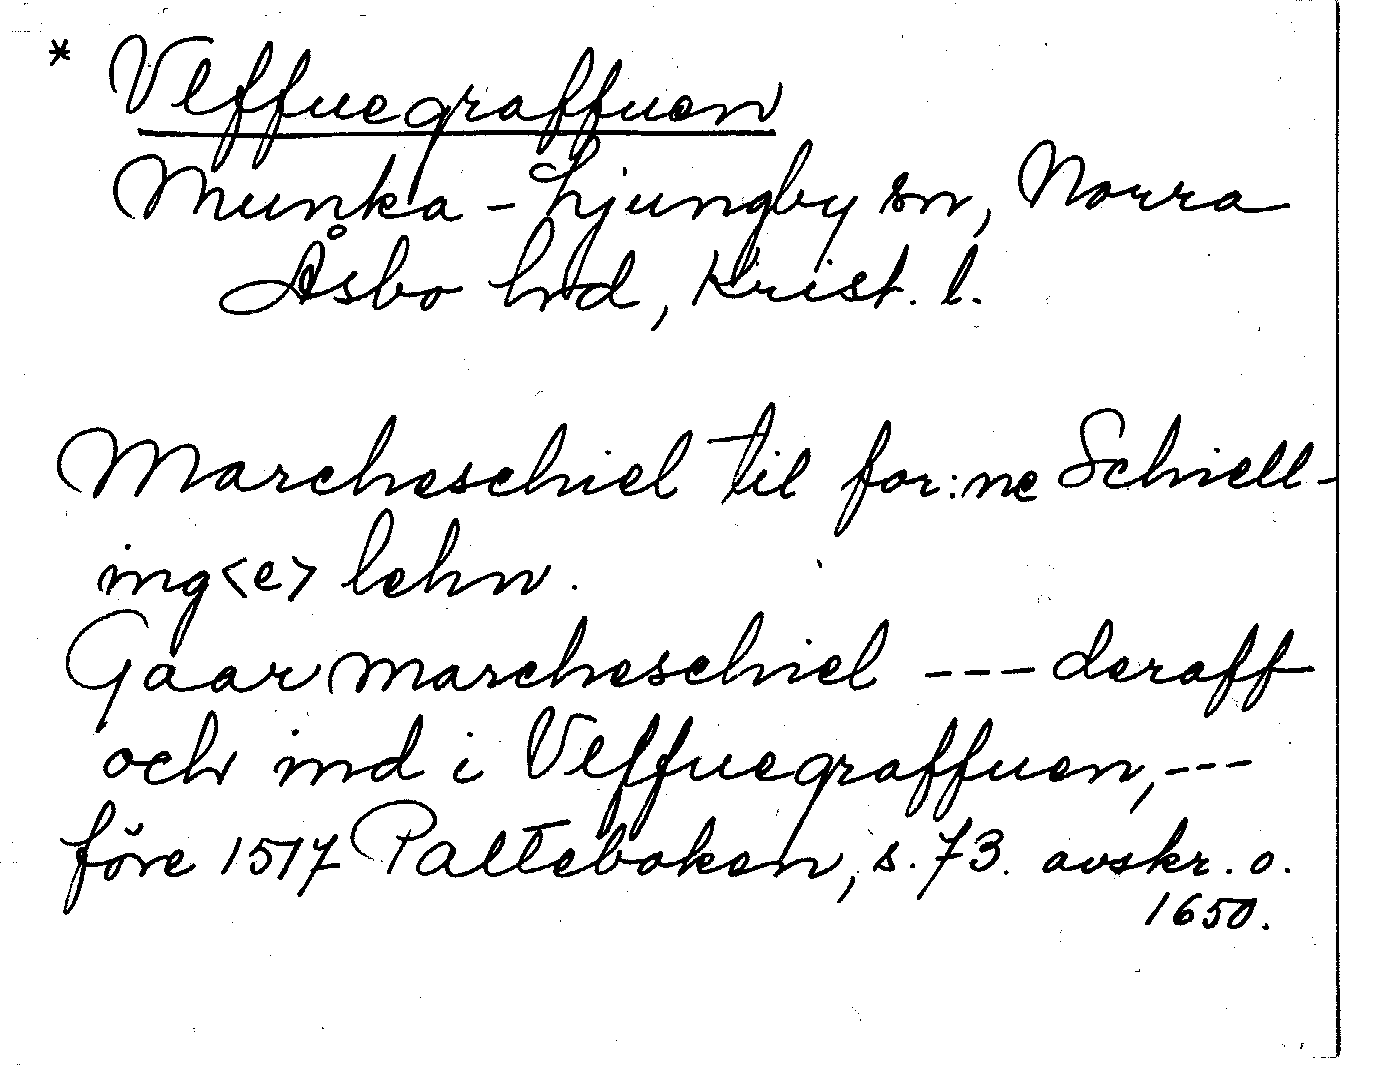 * Vlffuegraffuen
Munka-Ljungby sn, Norra
Åsbo hd, Krist. l.
Marcheschiel til for:ne Schiell-
ing<e> lehn.
Gaar marcheschiel --- deraff
och ind i Vlffuegraffuen, ---
före 1517 Palteboken, s. 73. avskr. o.
1650.